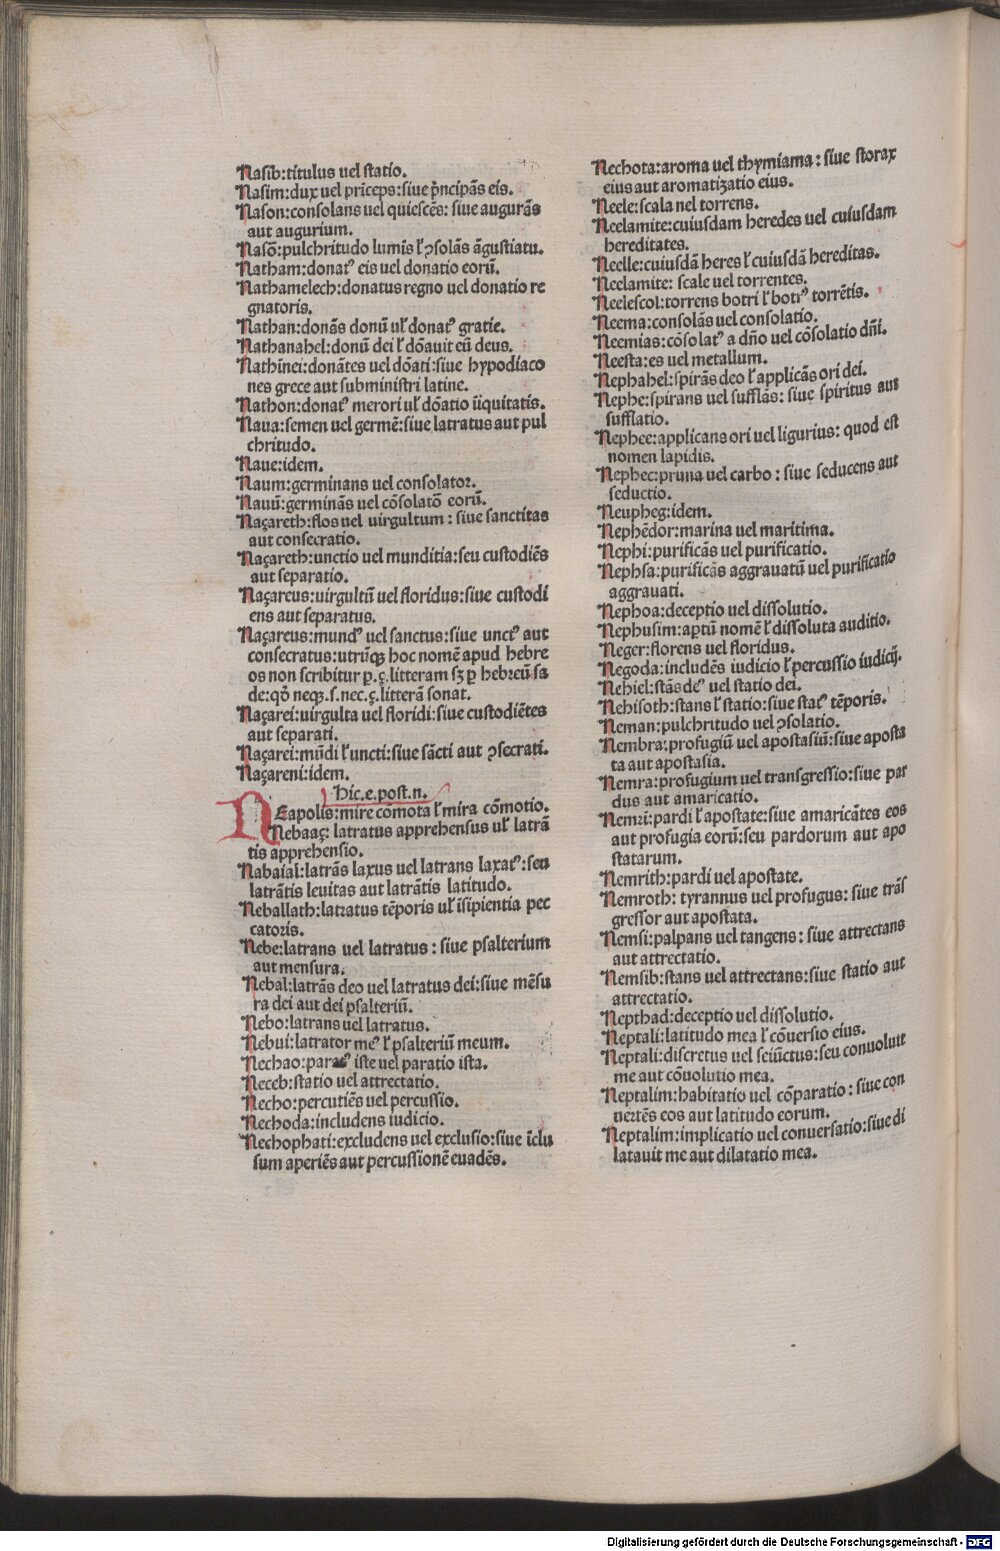 Nasib:titulus uel statio.
Nasim:dux uel priceps:siue pͥncipãs eis.
Nason:consolans uel quiescẽs: siue augurãs
aut augurium.
Nasõ:pulchritudo lumĩs ł ꝯsolãs ãgustiatu.
Natham:donatꝰ eis uel donatio eorũ.
Nathamelech:donatus regno uel donatio re
gnatoris.
Nathan:donãs donũ uł donatꝰ gratie.
Nathanahel:donũ dei ł dõauit eũ deus.
Nathinei:donãtes uel dõati:siue hypodiaco
nes grece aut subministri latine.
Nathon:donatꝰ merori uł dõatio ũiquitatis.
Naua:semen uel germẽ:siue latratus aut pul
chritudo.
Naue:idem.
Naum:germinans uel consolator.
Nauũ:germinãs uel cõsolatõ eorũ.
Naçareth:flos uel uirgultum: siue sanctitas
aut consecratio.
Naçareth:unctio uel munditia:seu custodiẽs
aut separatio.
Naçareus:uirgultũ uel floridus:siue custodi
ens aut separatus.
Naçareus:mundꝰ uel sanctus:siue unctꝰ aut
consecratus:utrũqꝫ hoc nomẽ apud hebre
os non scribitur p.ç.litteram sꝫ p hebreũ sa
de:qð neqꝫ.s.nec.ç.litterã sonat.
Naçarei:uirgulta uel floridi:siue custodiẽtes
aut separati.
Naçarei:mũdi ł uncti:siue sãcti aut ꝯsecrati.
Naçareni:idem.
Hic.e.post.n.
NEapolis:mire cõmota ł mira cõmotio.
Nebaaç: latratus apprehensus uł latrã
tis apprehensio.
Nabaial:latrãs laxus uel latrans laxatꝰ:seu
latrãtis leuitas aut latrãtis latitudo.
Neballath:latratus tẽporis uł ĩsipientia pec
catoris.
Nebe:latrans uel latratus: siue psalterium
aut mensura.
Nebal:latrãs deo uel latratus dei:siue mẽsu
ra dei aut dei psalteriũ.
Nebo:latrans uel latratus.
Nebui:latrator meꝰ ł psalteriũ meum.
Nechao:paratꝰ iste uel paratio ista.
Neceb:statio uel attrectatio.
Necho:percutiẽs uel percussio.
Nechoda:includens iudicio.
Nechophati:excludens uel exclusio:siue ĩclu
sum aperiẽs aut percussionẽ euadẽs.
Nechota:aroma uel thymiama: siue storax
eius aut aromatizatio eius.
Neele:scala nel torrens.
Neelamite:cuiusdam heredes uel cuiusdam
hereditates.
Neelle:cuiusdã heres ł cuiusdã hereditas.
Neelamite: scale uel torrentes.
Neelescol:torrens botri ł botꝰ torrẽtis.
Neema:consolãs uel consolatio.
Neemias:cõsolatꝰ a dño uel cõsolatio dñi.
Neesta:es uel metallum.
Nephahel:spirãs deo ł applicãs ori dei.
Nephe:spirans uel sufflãs: siue spiritus aut
sufflatio.
Nephee:applicans ori uel ligurius: quod est
nomen lapidis.
Nephec:pruna uel carbo: siue seducens aut
seductio.
Neupheg:idem.
Nephẽdor:marina uel maritima.
Nephi:purificãs uel purificatio.
Nephsa:purificãs aggrauatũ uel purificatio
aggrauati.
Nephoa:deceptio uel dissolutio.
Nephusim:aptũ nomẽ ł dissoluta auditio.
Neger:florens uel floridus.
Negoda:includẽs iudicio ł percussio iudicij.
Nehiel:stãs deꝰ uel statio dei.
Nehisoth:stans ł statio:siue statꝰ tẽporis.
Neman:pulchritudo uel ꝯsolatio.
Nembra:profugiũ uel apostasiũ:siue aposta
ta aut apostasia.
Nemra:profugium uel transgressio:siue par
dus aut amaricatio.
Nemri:pardi ł apostate:siue amaricãtes eos
aut profugia eorũ:seu pardorum aut apo
statarum.
Nemrith:pardi uel apostate.
Nemroth: tyrannus uel profugus: siue trãs
gressor aut apostata.
Nemsi:palpans uel tangens: siue attrectans
aut attrectatio.
Nemsib:stans uel attrectans:siue statio aut
attrectatio.
Nepthad:deceptio uel dissolutio.
Neptali:latitudo mea ł cõuersio eius.
Neptali:discretus uel seiũctus:seu conuoluit
me aut cõuolutio mea.
Neptalim:habitatio uel cõparatio: siue con
uertẽs eos aut latitudo eorum.
Neptalim:implicatio uel conuersatio:siue di
latauit me aut dilatatio mea.
Digitalisierung gefördert durch die Deutsche Forschungsgemeinschaft - DFG